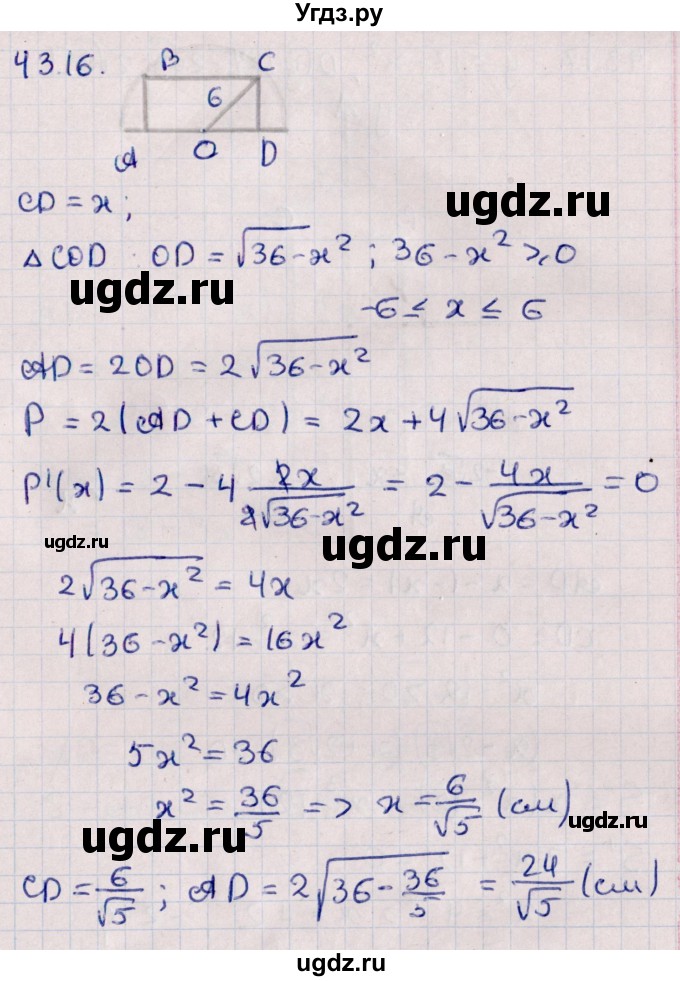 Угдз.ру
43.16.
B C
6
A O D
ugdz.ru
CD = x;
△COD OD = √(36-x²); 36-x² ≥ 0
ugdz.ru
-6 ≤ x ≤ 6
AD = 2OD = 2√(36-x²)
P = 2(AD + CD) = 2x + 4√(36-x²)
P'(x) = 2 - 4 2x/(2√(36-x²)) = 2 - 4x/√(36-x²) = 0
ugdz.ru ugdz.ru
2√(36-x²) = 4x
4(36-x²) = 16x²
ugdz.ru
36-x² = 4x²
5x² = 36
x² = 36/5 => x = 6/√5 (см)
ugdz.ru ugdz.ru
CD = 6/√5; AD = 2√(36 - 36/5) = 24/√5 (см)
ugdz.ru
ugdz.ru